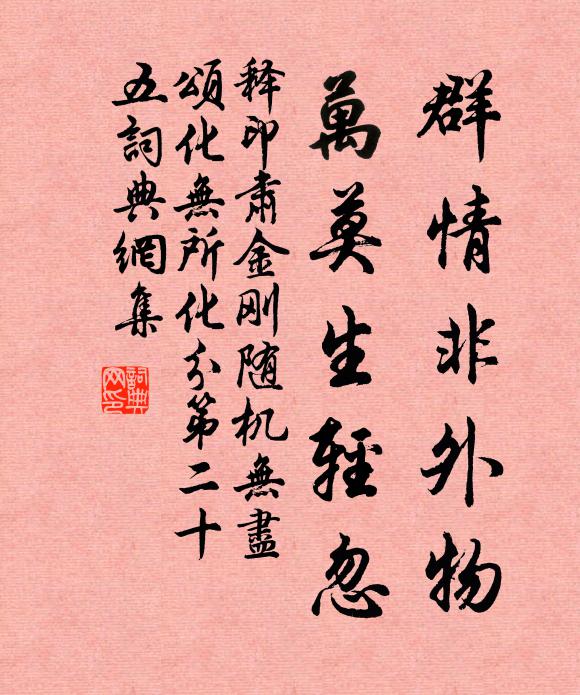 群情非外物
萬莫生輕忽
释印肃金刚随机無盡
頌化無所化分第二十
五詞典網集
詞典
网印